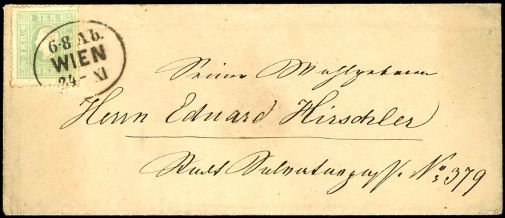 6-8 Ab.
WIEN
24 - XI
Seiner Wohlgeboren
Herrn Eduard Hirschler
Stadt Salvatorgasse No 379